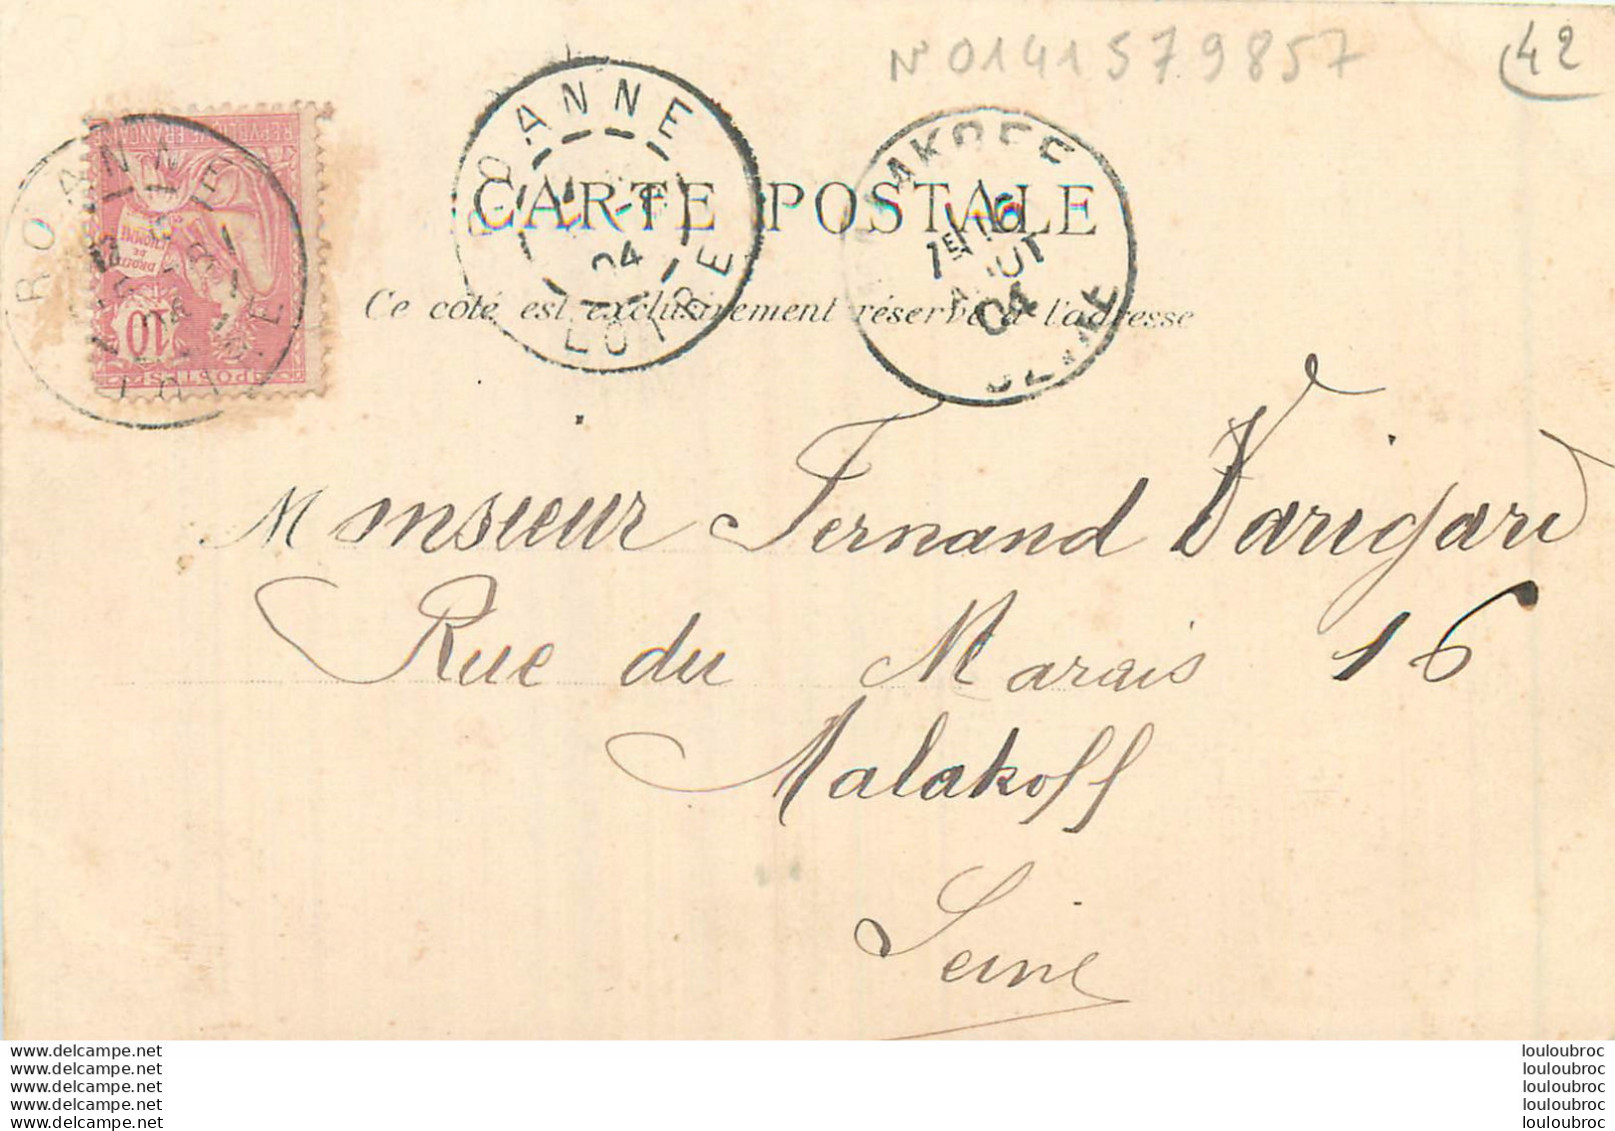 N° 0141579857
42
ROANNE
04
LOIRE
ROANNE
LOIRE
REPUBLIQUE FRANCAISE
DROITS
DE
L'HOMME
10
POSTES
7E
AOUT
04
SEINE
CARTE POSTALE
Ce côté est exclusivement réservé à l'adresse
Monsieur Fernand Varigard
Rue du Marais 16
Malakoff
Seine
www.delcampe.net
www.delcampe.net
www.delcampe.net
www.delcampe.net
www.delcampe.net
louloubroc
louloubroc
louloubroc
louloubroc
louloubroc